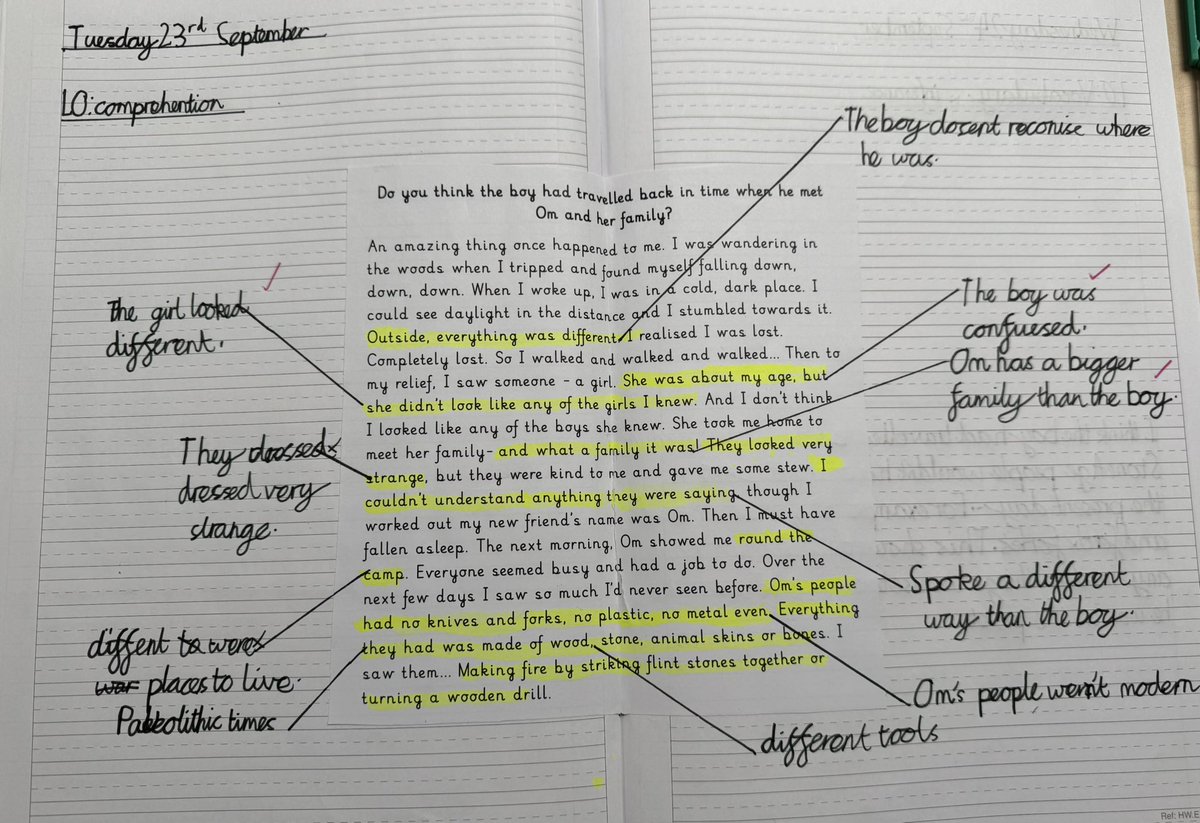 Tuesday 23rd September
LO: comprehention
The boy dosent reconise where
he was.
Do you think the boy had travelled back in time when he met
Om and her family?
An amazing thing once happened to me. I was wandering in
the woods when I tripped and found myself falling down,
down, down. When I woke up, I was in a cold, dark place. I
could see daylight in the distance and I stumbled towards it.
Outside, everything was different. I realised I was lost.
Completely lost. So I walked and walked and walked... Then to
my relief, I saw someone - a girl. She was about my age, but
she didn't look like any of the girls I knew. And I don't think
I looked like any of the boys she knew. She took me home to
meet her family- and what a family it was! They looked very
strange, but they were kind to me and gave me some stew. I
couldn't understand anything they were saying, though I
worked out my new friend's name was Om. Then I must have
fallen asleep. The next morning, Om showed me round the
camp. Everyone seemed busy and had a job to do. Over the
next few days I saw so much I'd never seen before. Om's people
had no knives and forks, no plastic, no metal even. Everything
they had was made of wood, stone, animal skins or bones. I
saw them... Making fire by striking flint stones together or
turning a wooden drill.
The girl looked
different.
They
dressed very
strange.
diffent
places to live.
Paleolithic times
The boy was
confuesed.
Om has a bigger
family than the boy.
Spoke a different
way than the boy.
Om's people wern't modern
different tools
Ref: HW.E